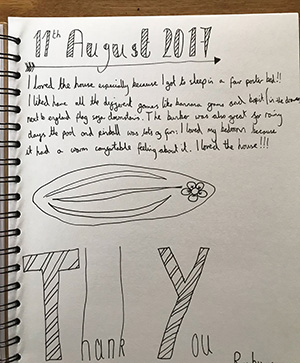 11th August 2017
I loved the house especially because I got to sleep in a four poster bed!!
I liked have all the different games like banana grams and bopit (in the drawer
next to england flag sign downstairs). The bunker was also great for rainy
days the pool and pinball was lots of fun. I loved my bedroom because
it had a warm comfortable feeling about it. I loved the house!!!
Thank You